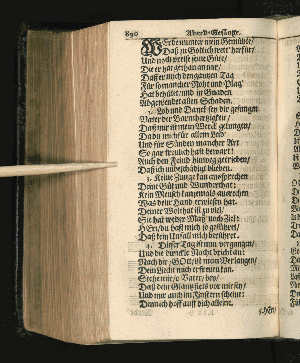 890 Abend-Gesänge.
WErde munter mein Gemühte/
Daß zu Gottes
und seine Güte/
Die er hat gethan an mir/
Daß er mich den gantzen Tag
Für so mancher Noht und Plag'
Hat behütet/und in Gnaden
Abgewendet allen Schaden.
2. Lob und Danck sey dir gesungen
Vater der Barmhertzigkeit/
Daß mir ist mein Werck gelungen/
Daß du mich für allem Leid'
Und für Sünden mancher Art
So gar treulich hast bewart!
Auch den Feind hinweg getrieben/
Daß ich unbeschädigt blieben.
3. Keine Zunge kan aussprechen
Deine Güt und Wunderthat:
Kein Mensch kan jemals ausrechen
Was dein Hand erwiesen hat.
Deiner Wolthat ist zu viel/
Sie hat weder Maß noch Ziel:
HErr/du hast mich so geführet/
Daß kein Unfall mich berühret.
4. Dieser Tag ist nun vergangen/
Und die Nacht bricht an:
Nach dir/GOtt/ist mein Verlangen/
Dein Licht
Stehe mir/o Vater/bey/
Daß dein Glantz stets vor mir sey/
Und mir auch im Finstern scheine:
Dennoch hoff auff dich alleine.